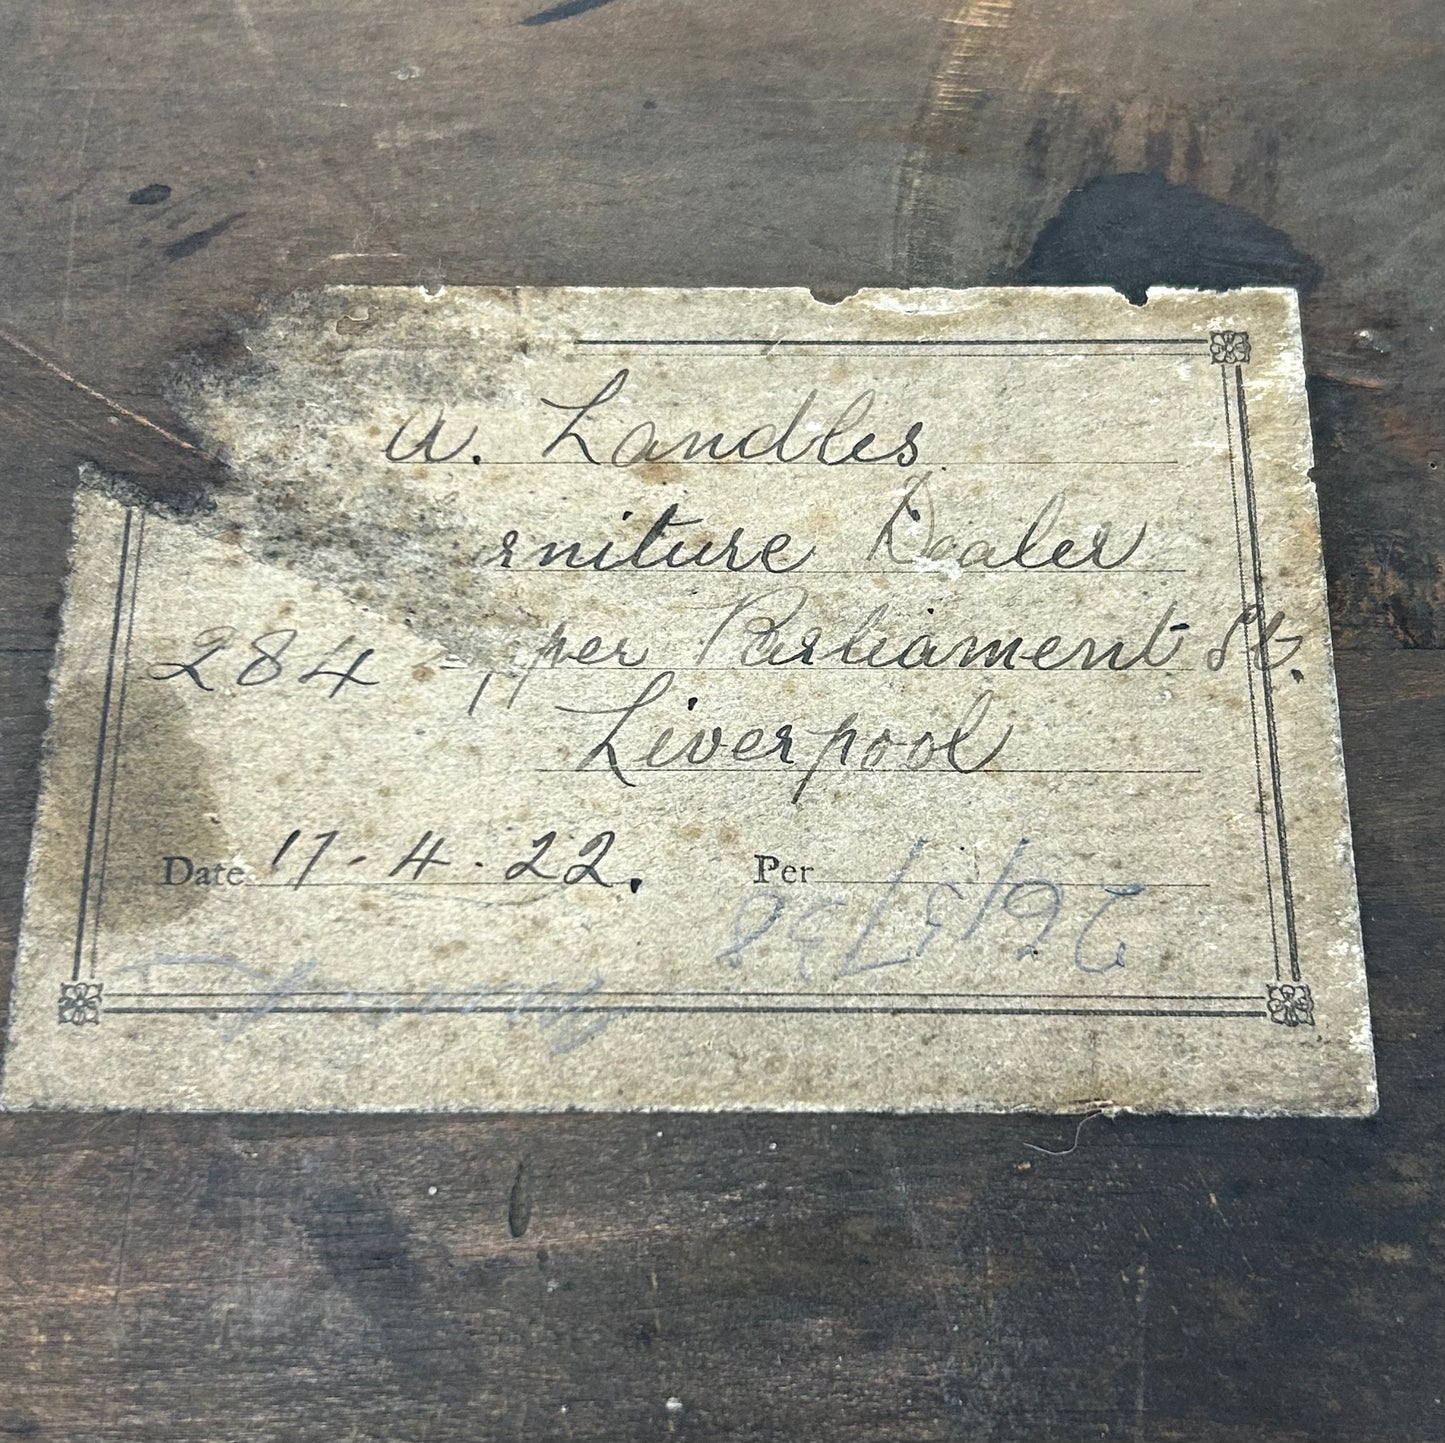 A. Landles
rniture Dealer
284 pper Parliament St.
Liverpool
Date 17-4-22. Per
26/3/38